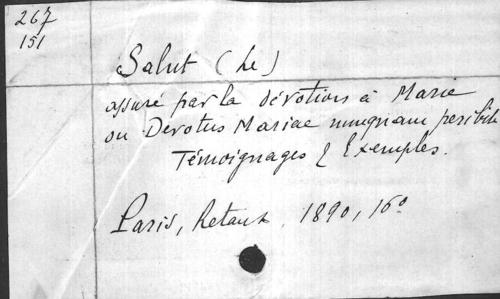 267
151
Salut (Le)
assuré par la dévotion à Marie
ou Devotus Mariae nunquam peribit
Témoignages & Exemples.
Paris, Retaux, 1890, 16º